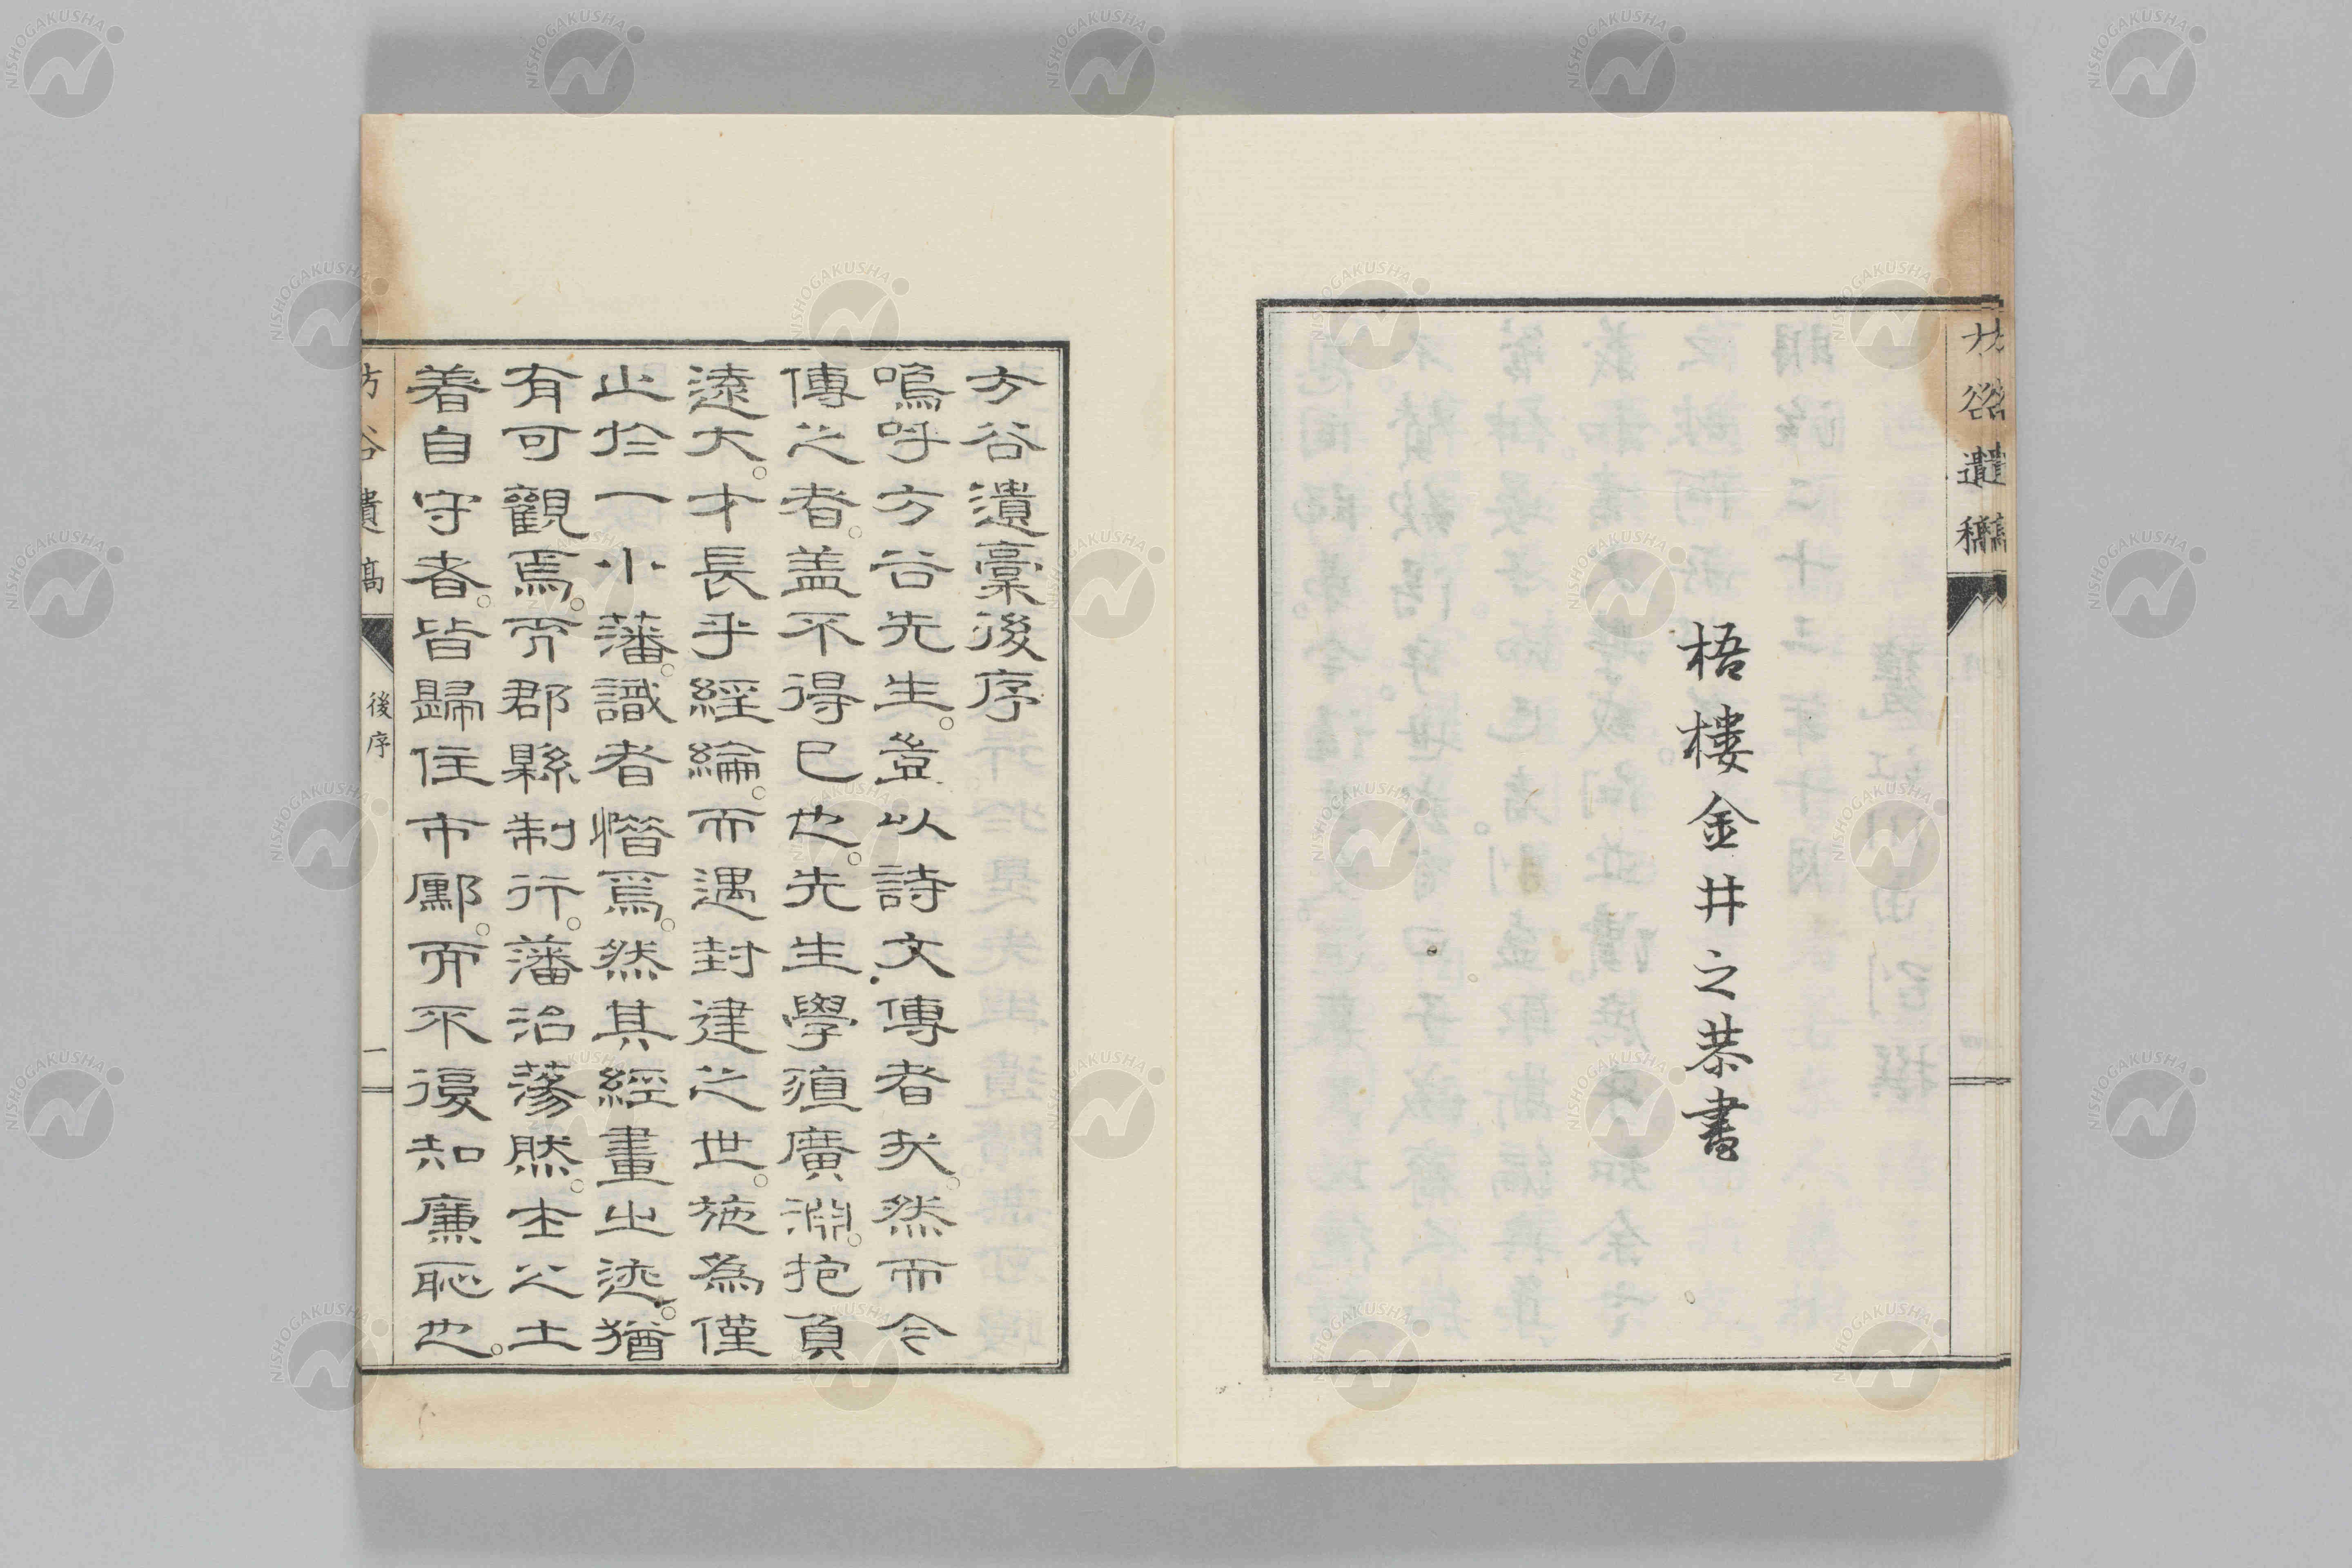 梧樓金井之恭書
方谷遺稿
方谷遺稾後序
嗚呼方谷先生。豈以詩文傳者哉。然而今
傳之者。蓋不得已也。先生學殖廣淵。抱負
遠大。才長乎經綸。而遇封建之世。施為僅
止於一小藩。識者惜焉。然其經畫之迹。猶
有可觀焉。而郡縣制行。藩治蕩然。士之土
着自守者。皆歸住市鄽。而不復知廉恥也。
方谷遺稿
後序
一
NISHOGAKUSHA